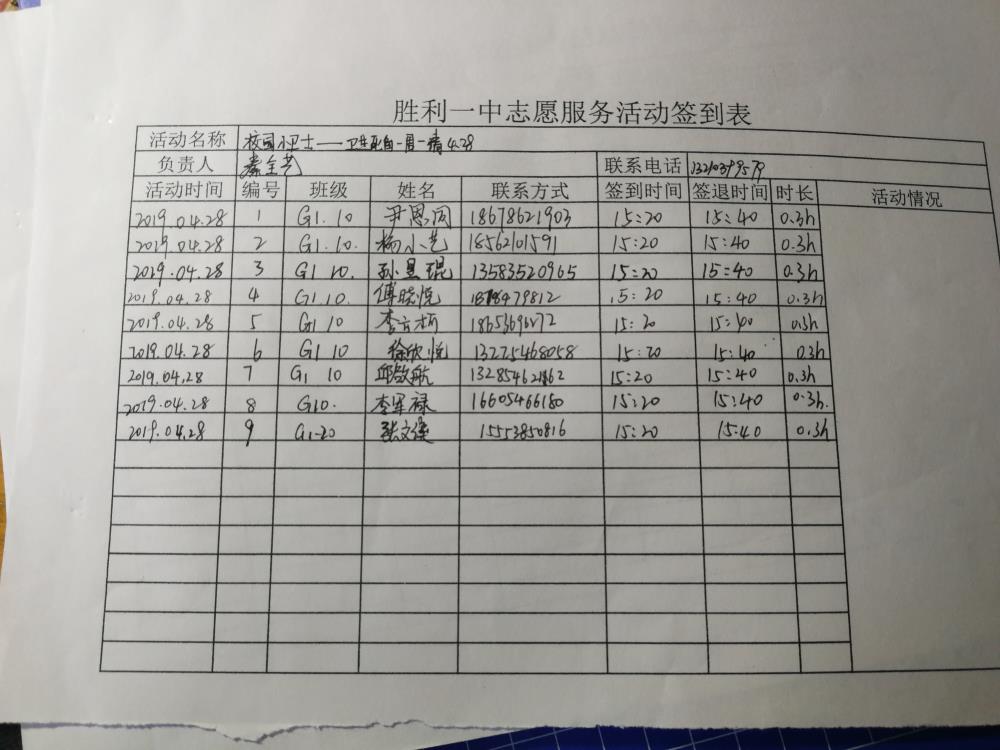 胜利一中志愿服务活动签到表
活动名称 校园小卫士——卫生死角一周一清4.28
负责人 联系电话
活动时间 编号 班级 姓名 联系方式 签到时间 签退时间 时长 活动情况
2019.04.28 1 G1.10 尹思同 18678621903 15:20 15:40 0.3h
2019.04.28 2 G1.10. 杨小艺 18562101591 15:20 15:40 0.3h
2029.04.28 3 G1 10. 孙昱琨 13583520965 15:20 15:40 0.3h
2019.04.28 4 G1.10. 傅晓悦 15:20 15:40 0.3h
2019.04.28 5 G1 10 15:20 15:40 0.3h
2019.04.28 6 G1 10 徐欣悦 13275468058 15:20 15:40 0.3h
2019.04.28 7 G1 10 邱敬航 15:20 15:40 0.3h
2019.04.28 8 G10. 李军禄 16605466180 15:20 15:40 0.3h.
2019.04.28 9 G1-20 15553850816 15:20 15:40 0.3h